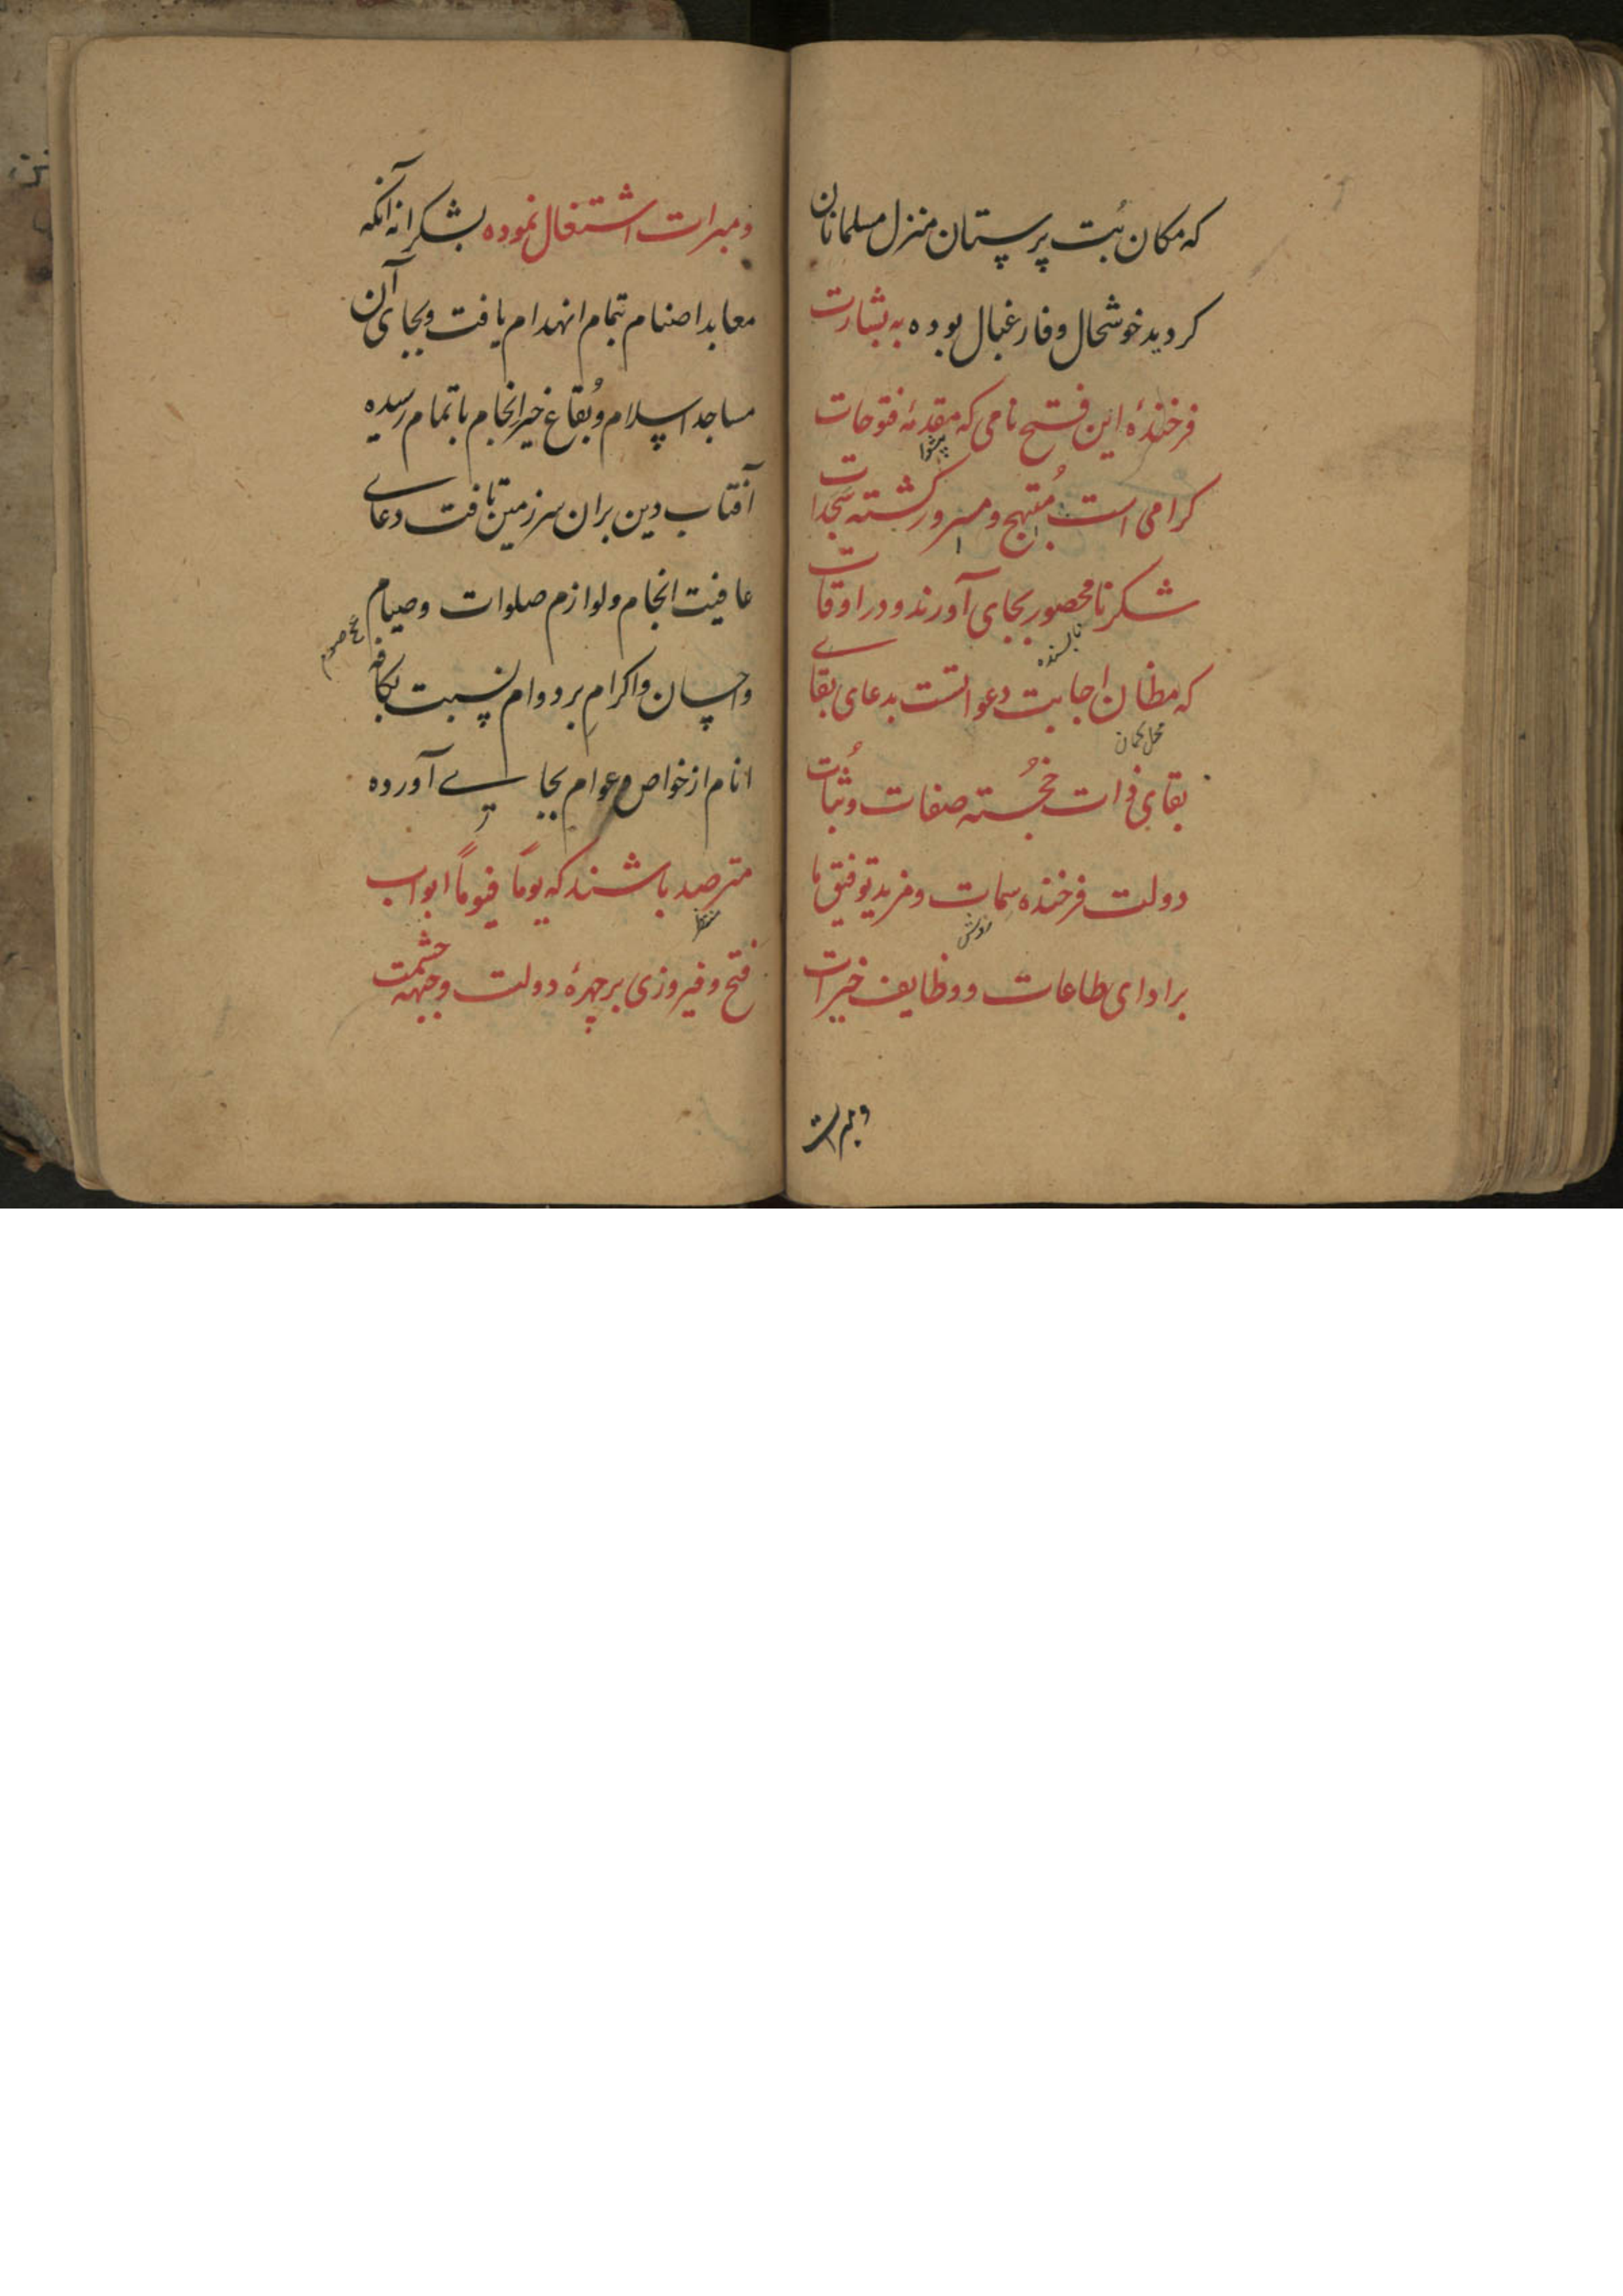 که مکان بُت پرستان منزل مسلمانان
کردید خوشحال و فارغبال بوده به بشارت
فرخندهٔ این فتح نامی که مقدمهٔ فتوحات
پیشوا
کرامی است مُبتهج و مسرور کشته سَجَدات
شکر نامحصور بجای آورند و در اوقات
که مظان اجابت دعواتست بدعای بقای
محل کمان
بقای ذات خجُسته صفات و ثُبات
دولت فرخنده سمات و مزید توفیق ما
روش
بر ادای طاعات و وظایف خیرات
و مبرات
و مبرات اشتغال نموده بشکرانه آنکه
معابد اصنام تمام انهدام یافت و بجای آن
مساجد اسلام و بُقاع خیر انجام باتمام رسیده
آفتاب دین بران سرزمین تافت دعای
عافیت انجام و لوازم صلوات و صیام
جمع صوم
و احسان و اکرامِ بر دوام نسبت بکافه
انام از خواص و عوام بجای آورده
مترصد باشند که یوماً فیوماً ابواب
منتظر
فتح و فیروزی بر چهرهٔ دولت و جبهه حشمت